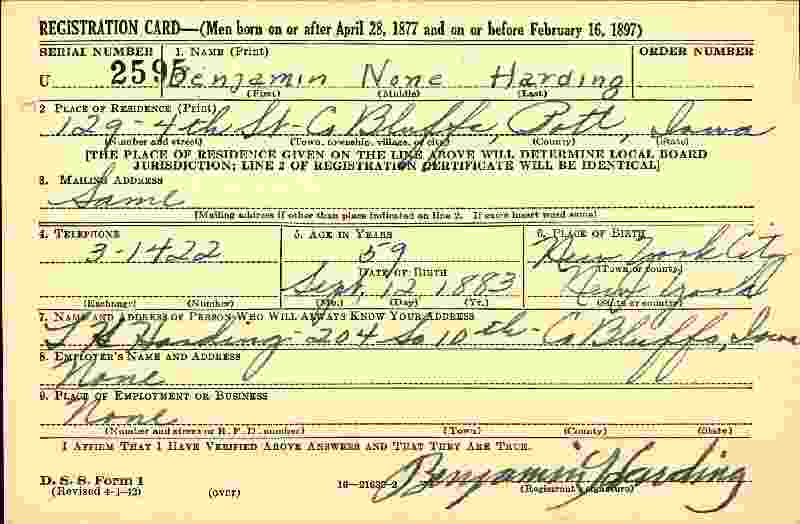 REGISTRATION CARD—(Men born on or after April 28, 1877 and on or before February 16, 1897)
SERIAL NUMBER 1. NAME (Print) ORDER NUMBER
U 2595 Benjamin None Harding
(First) (Middle) (Last)
2 PLACE OF RESIDENCE (Print)
129-4th St-Co Bluffs, Pott, Iowa
(Number and street) (Town, township, village, or city) (County) (State)
[THE PLACE OF RESIDENCE GIVEN ON THE LINE ABOVE WILL DETERMINE LOCAL BOARD
JURISDICTION; LINE 2 OF REGISTRATION CERTIFICATE WILL BE IDENTICAL]
3. MAILING ADDRESS
Same
[Mailing address if other than place indicated on line 2. If same insert word same]
4. TELEPHONE 5. AGE IN YEARS 6. PLACE OF BIRTH
3-1422 59 New York City
DATE OF BIRTH (Town or county)
Sept. 12 1883 New York
(Exchange) (Number) (Mo.) (Day) (Yr.) (State or country)
7. NAME AND ADDRESS OF PERSON WHO WILL ALWAYS KNOW YOUR ADDRESS
L H Harding-204 So 10th-Co Bluffs, Iowa
8. EMPLOYER'S NAME AND ADDRESS
None
9. PLACE OF EMPLOYMENT OR BUSINESS
None
(Number and street or R. F. D. number) (Town) (County) (State)
I AFFIRM THAT I HAVE VERIFIED ABOVE ANSWERS AND THAT THEY ARE TRUE.
D. S. S. Form 1
(Revised 4-1-42) (over) 16—21630-2 Benjamin Harding
(Registrant's signature)